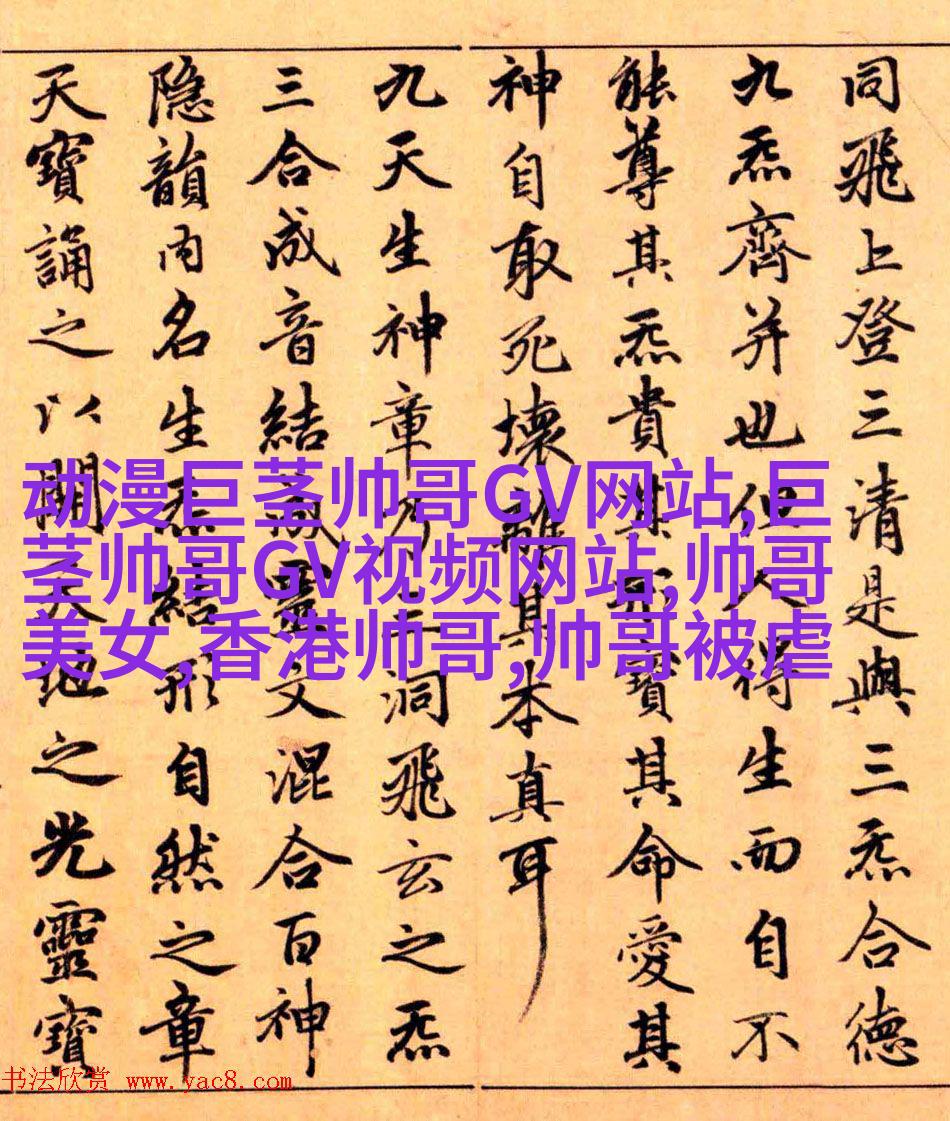 同飛上登三清是與三炁合德
九炁齊并也但人得生而自不
能尊其炁貴其形寶其命愛其
神自取死壞離其本真耳
九天生神章乃三洞飛玄之炁
三合成音結成靈文混合百神
隐韻内名生炁結形自然之章
天寶誦之以開天地之光靈寶
动漫巨茎帅哥GV网站,巨
茎帅哥GV视频网站,帅哥
美女,香港帅哥,帅哥被虐
书法欣赏 www.yac8.com